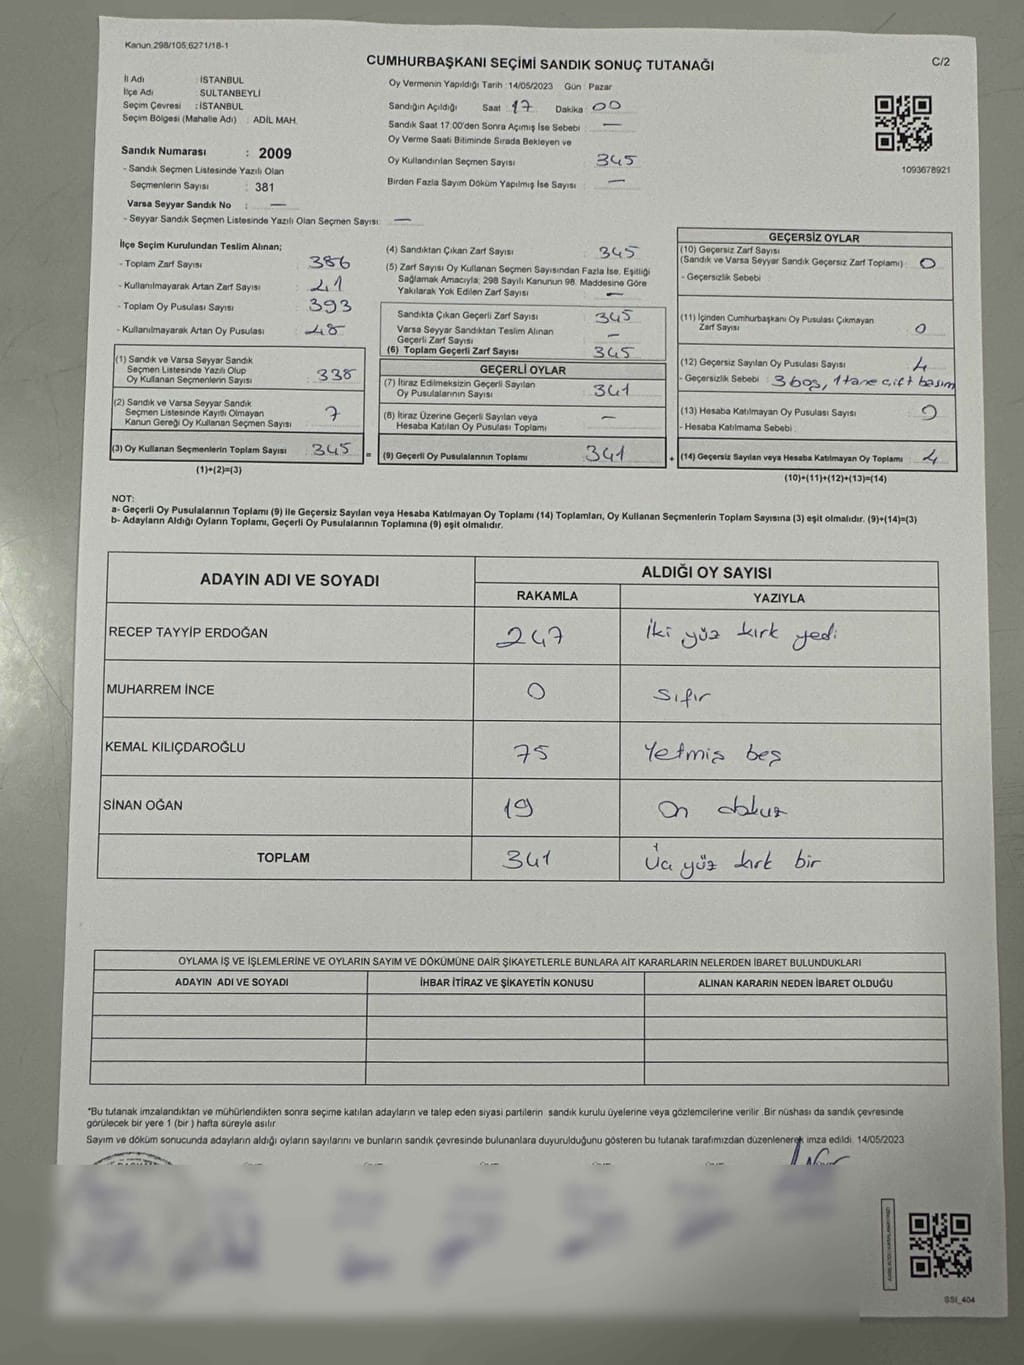 Kanun 298/105,6271/18-1
CUMHURBAŞKANI SEÇİMİ SANDIK SONUÇ TUTANAĞI
C/2
İl Adı : İSTANBUL
İlçe Adı : SULTANBEYLİ
Seçim Çevresi : İSTANBUL
Seçim Bölgesi (Mahalle Adı) : ADİL MAH.
Sandık Numarası : 2009
- Sandık Seçmen Listesinde Yazılı Olan
Seçmenlerin Sayısı : 381
Varsa Seyyar Sandık No : —
- Seyyar Sandık Seçmen Listesinde Yazılı Olan Seçmen Sayısı: —
Oy Vermenin Yapıldığı Tarih : 14/05/2023 Gün : Pazar
Sandığın Açıldığı Saat : 17 Dakika : 00
Sandık Saat 17:00'den Sonra Açımış İse Sebebi : —
Oy Verme Saati Bitiminde Sırada Bekleyen ve
Oy Kullandırılan Seçmen Sayısı : 345
Birden Fazla Sayım Döküm Yapılmış İse Sayısı : —
1093678921
İlçe Seçim Kurulundan Teslim Alınan;
- Toplam Zarf Sayısı : 386
- Kullanılmayarak Artan Zarf Sayısı : 41
- Toplam Oy Pusulası Sayısı : 393
- Kullanılmayarak Artan Oy Pusulası : 48
(1) Sandık ve Varsa Seyyar Sandık
Seçmen Listesinde Yazılı Olup
Oy Kullanan Seçmenlerin Sayısı : 338
(2) Sandık ve Varsa Seyyar Sandık
Seçmen Listesinde Kayıtlı Olmayan
Kanun Gereği Oy Kullanan Seçmen Sayısı : 7
(3) Oy Kullanan Seçmenlerin Toplam Sayısı : 345
(1)+(2)=(3)
(4) Sandıktan Çıkan Zarf Sayısı : 345
(5) Zarf Sayısı Oy Kullanan Seçmen Sayısından Fazla İse, Eşitliği
Sağlamak Amacıyla, 298 Sayılı Kanunun 98. Maddesine Göre
Yakılarak Yok Edilen Zarf Sayısı : —
Sandıkta Çıkan Geçerli Zarf Sayısı : 345
Varsa Seyyar Sandıktan Teslim Alınan
Geçerli Zarf Sayısı : —
(6) Toplam Geçerli Zarf Sayısı : 345
GEÇERLİ OYLAR
(7) İtiraz Edilmeksizin Geçerli Sayılan
Oy Pusulalarının Sayısı : 341
(8) İtiraz Üzerine Geçerli Sayılan veya
Hesaba Katılan Oy Pusulası Toplamı : —
= (9) Geçerli Oy Pusulalarının Toplamı : 341
GEÇERSİZ OYLAR
(10) Geçersiz Zarf Sayısı
(Sandık ve Varsa Seyyar Sandık Geçersiz Zarf Toplamı) : 0
- Geçersizlik Sebebi
(11) İçinden Cumhurbaşkanı Oy Pusulası Çıkmayan
Zarf Sayısı : 0
(12) Geçersiz Sayılan Oy Pusulası Sayısı : 4
- Geçersizlik Sebebi : 3 boş, 1 tane çift basım
(13) Hesaba Katılmayan Oy Pusulası Sayısı : 0
- Hesaba Katılmama Sebebi :
+ (14) Geçersiz Sayılan veya Hesaba Katılmayan Oy Toplamı : 4
(10)+(11)+(12)+(13)=(14)
NOT:
a- Geçerli Oy Pusulalarının Toplamı (9) ile Geçersiz Sayılan veya Hesaba Katılmayan Oy Toplamı (14) Toplamları, Oy Kullanan Seçmenlerin Toplam Sayısına (3) eşit olmalıdır. (9)+(14)=(3)
b- Adayların Aldığı Oyların Toplamı, Geçerli Oy Pusulalarının Toplamına (9) eşit olmalıdır.
ADAYIN ADI VE SOYADI
ALDIĞI OY SAYISI
RAKAMLA YAZIYLA
RECEP TAYYİP ERDOĞAN 247 İki yüz kırk yedi
MUHARREM İNCE 0 Sıfır
KEMAL KILIÇDAROĞLU 75 Yetmiş beş
SİNAN OĞAN 19 On dokuz
TOPLAM 341 Üç yüz kırk bir
OYLAMA İŞ VE İŞLEMLERİNE VE OYLARIN SAYIM VE DÖKÜMÜNE DAİR ŞİKAYETLERLE BUNLARA AİT KARARLARIN NELERDEN İBARET BULUNDUKLARI
ADAYIN ADI VE SOYADI İHBAR İTİRAZ VE ŞİKAYETİN KONUSU ALINAN KARARIN NEDEN İBARET OLDUĞU
*Bu tutanak imzalandıktan ve mühürlendikten sonra seçime katılan adayların ve talep eden siyasi partilerin sandık kurulu üyelerine veya gözlemcilerine verilir. Bir nüshası da sandık çevresinde
görülecek bir yere 1 (bir ) hafta süreyle asılır.
Sayım ve döküm sonucunda adayların aldığı oyların sayılarını ve bunların sandık çevresinde bulunanlara duyurulduğunu gösteren bu tutanak tarafımızdan düzenlenerek imza edildi. 14/05/2023
SSI_404